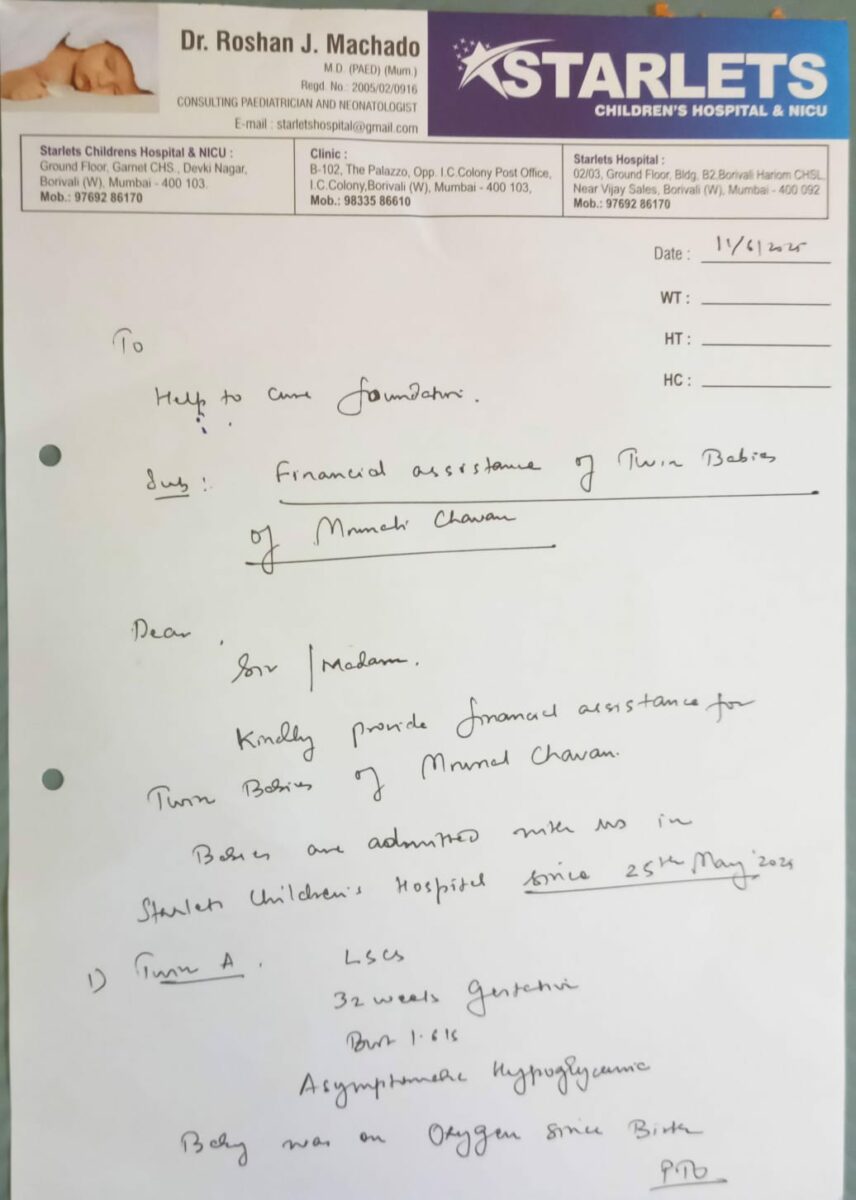 Dr. Roshan J. Machado
M.D. (PAED) (Mum.)
Regd. No.: 2005/02/0916
CONSULTING PAEDIATRICIAN AND NEONATOLOGIST
E-mail : starletshospital@gmail.com
STARLETS
CHILDREN'S HOSPITAL & NICU
Starlets Childrens Hospital & NICU :
Ground Floor, Garnet CHS., Devki Nagar,
Borivali (W), Mumbai - 400 103.
Mob.: 97692 86170
Clinic :
B-102, The Palazzo, Opp. I.C.Colony Post Office,
I.C.Colony,Borivali (W), Mumbai - 400 103,
Mob.: 98335 86610
Starlets Hospital :
02/03, Ground Floor, Bldg. B2,Borivali Hariom CHSL,
Near Vijay Sales, Borivali (W), Mumbai - 400 092
Mob.: 97692 86170
Date : 11/6/2025
WT :
HT :
HC :
To
Help to cure foundation.
Sub : Financial assistance of Twin Babies
of Chavan
Dear ,
Sir / Madam.
Kindly provide financial assistance for
Twin Babies of Mrunal Chavan.
Babies are admitted with us in
Starlets Children's Hospital since 25th May
1) Twin A . LSCS
32 weeks gestation
Asymptomatic Hypoglycemic
Baby was on Oxygen since Birth
PTO